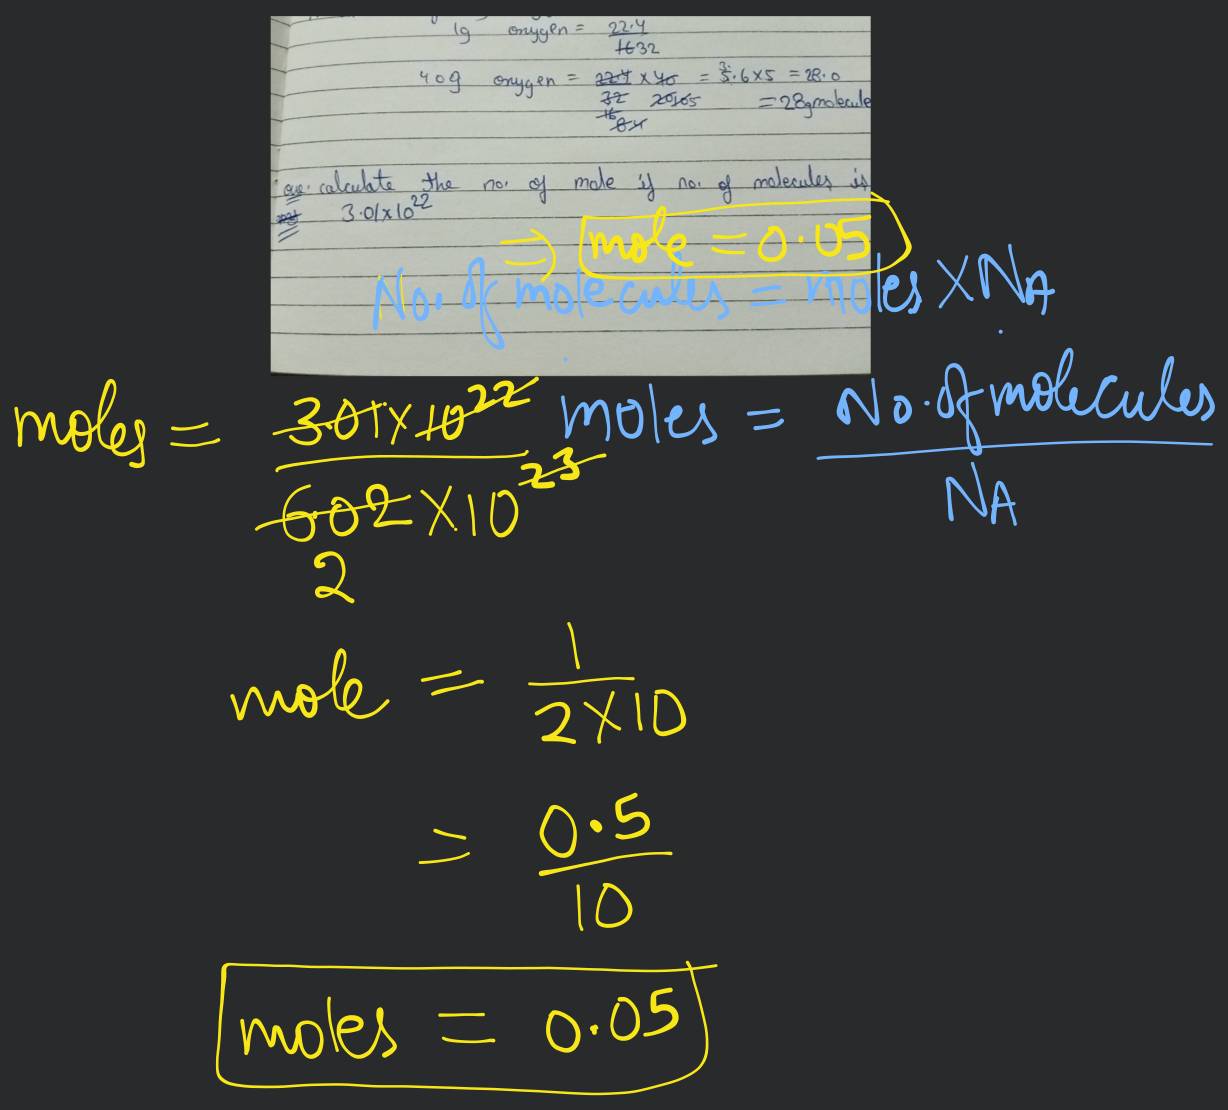 1g oxygen = 22.4
1632
40g oxygen = 22.4 x 40 = 5.6x5 = 28.0
32 20105 = 28g molecule
16
84
que. calculate the no. of mole if no. of molecules is
3.01x10²²
=> mole = 0.05
No. of molecules = moles X NA
moles = 301 x 10²² moles = No. of molecules
602 X 10²³ NA
2
mole = 1
2 X 10
= 0.5
10
moles = 0.05